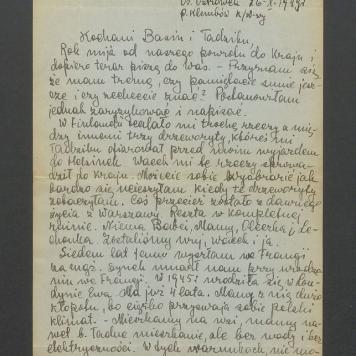 Os. Ostrówek 26-X-1949 r
p. Klembów k/W-wy
Kochani Basiu i Tadziku,
Rok mija od naszego powrotu do Kraju i
dopiero teraz piszę do was. - Przyznam się
że mam tremę, czy pamiętacie mnie jesz-
cze i czy zechcecie znać? Postanowiłam
jednak zaryzykować i napisać.
W Finlandii ocalało mi trochę rzeczy a mię-
dzy innemi trzy drzeworyty, któreś mi
Tadziku ofiarował przed moim wyjazdem
do Helsinek. Wacek mi te rzeczy sprowa-
dził do Kraju. Możecie sobie wyobrazić jak
bardzo się ucieszyłam kiedy te drzeworyty
zobaczyłam. Coś przecież zostało z dawnego
życia z Warszawy. Reszta w kompletnej
ruinie. Niema Babci, Mamy, Olcerka, i Le-
chonka. Zostaliśmy my, Wacek i ja.
Siedem lat temu wyszłam we Francji
za mąż. Synek umarł nam przy urodze-
niu we Francji. W 1945 r urodziła się w Lon-
dynie Ewa. Ma już 4 lata. Mamy z nią dużo
kłopotu, bo ciężko przyswaja sobie polski
klimat. - Mieszkamy na wsi, mamy na-
wet b. ładne mieszkanie, ale bez wody i bez
elektryczności. W tych warunkach nie mo-